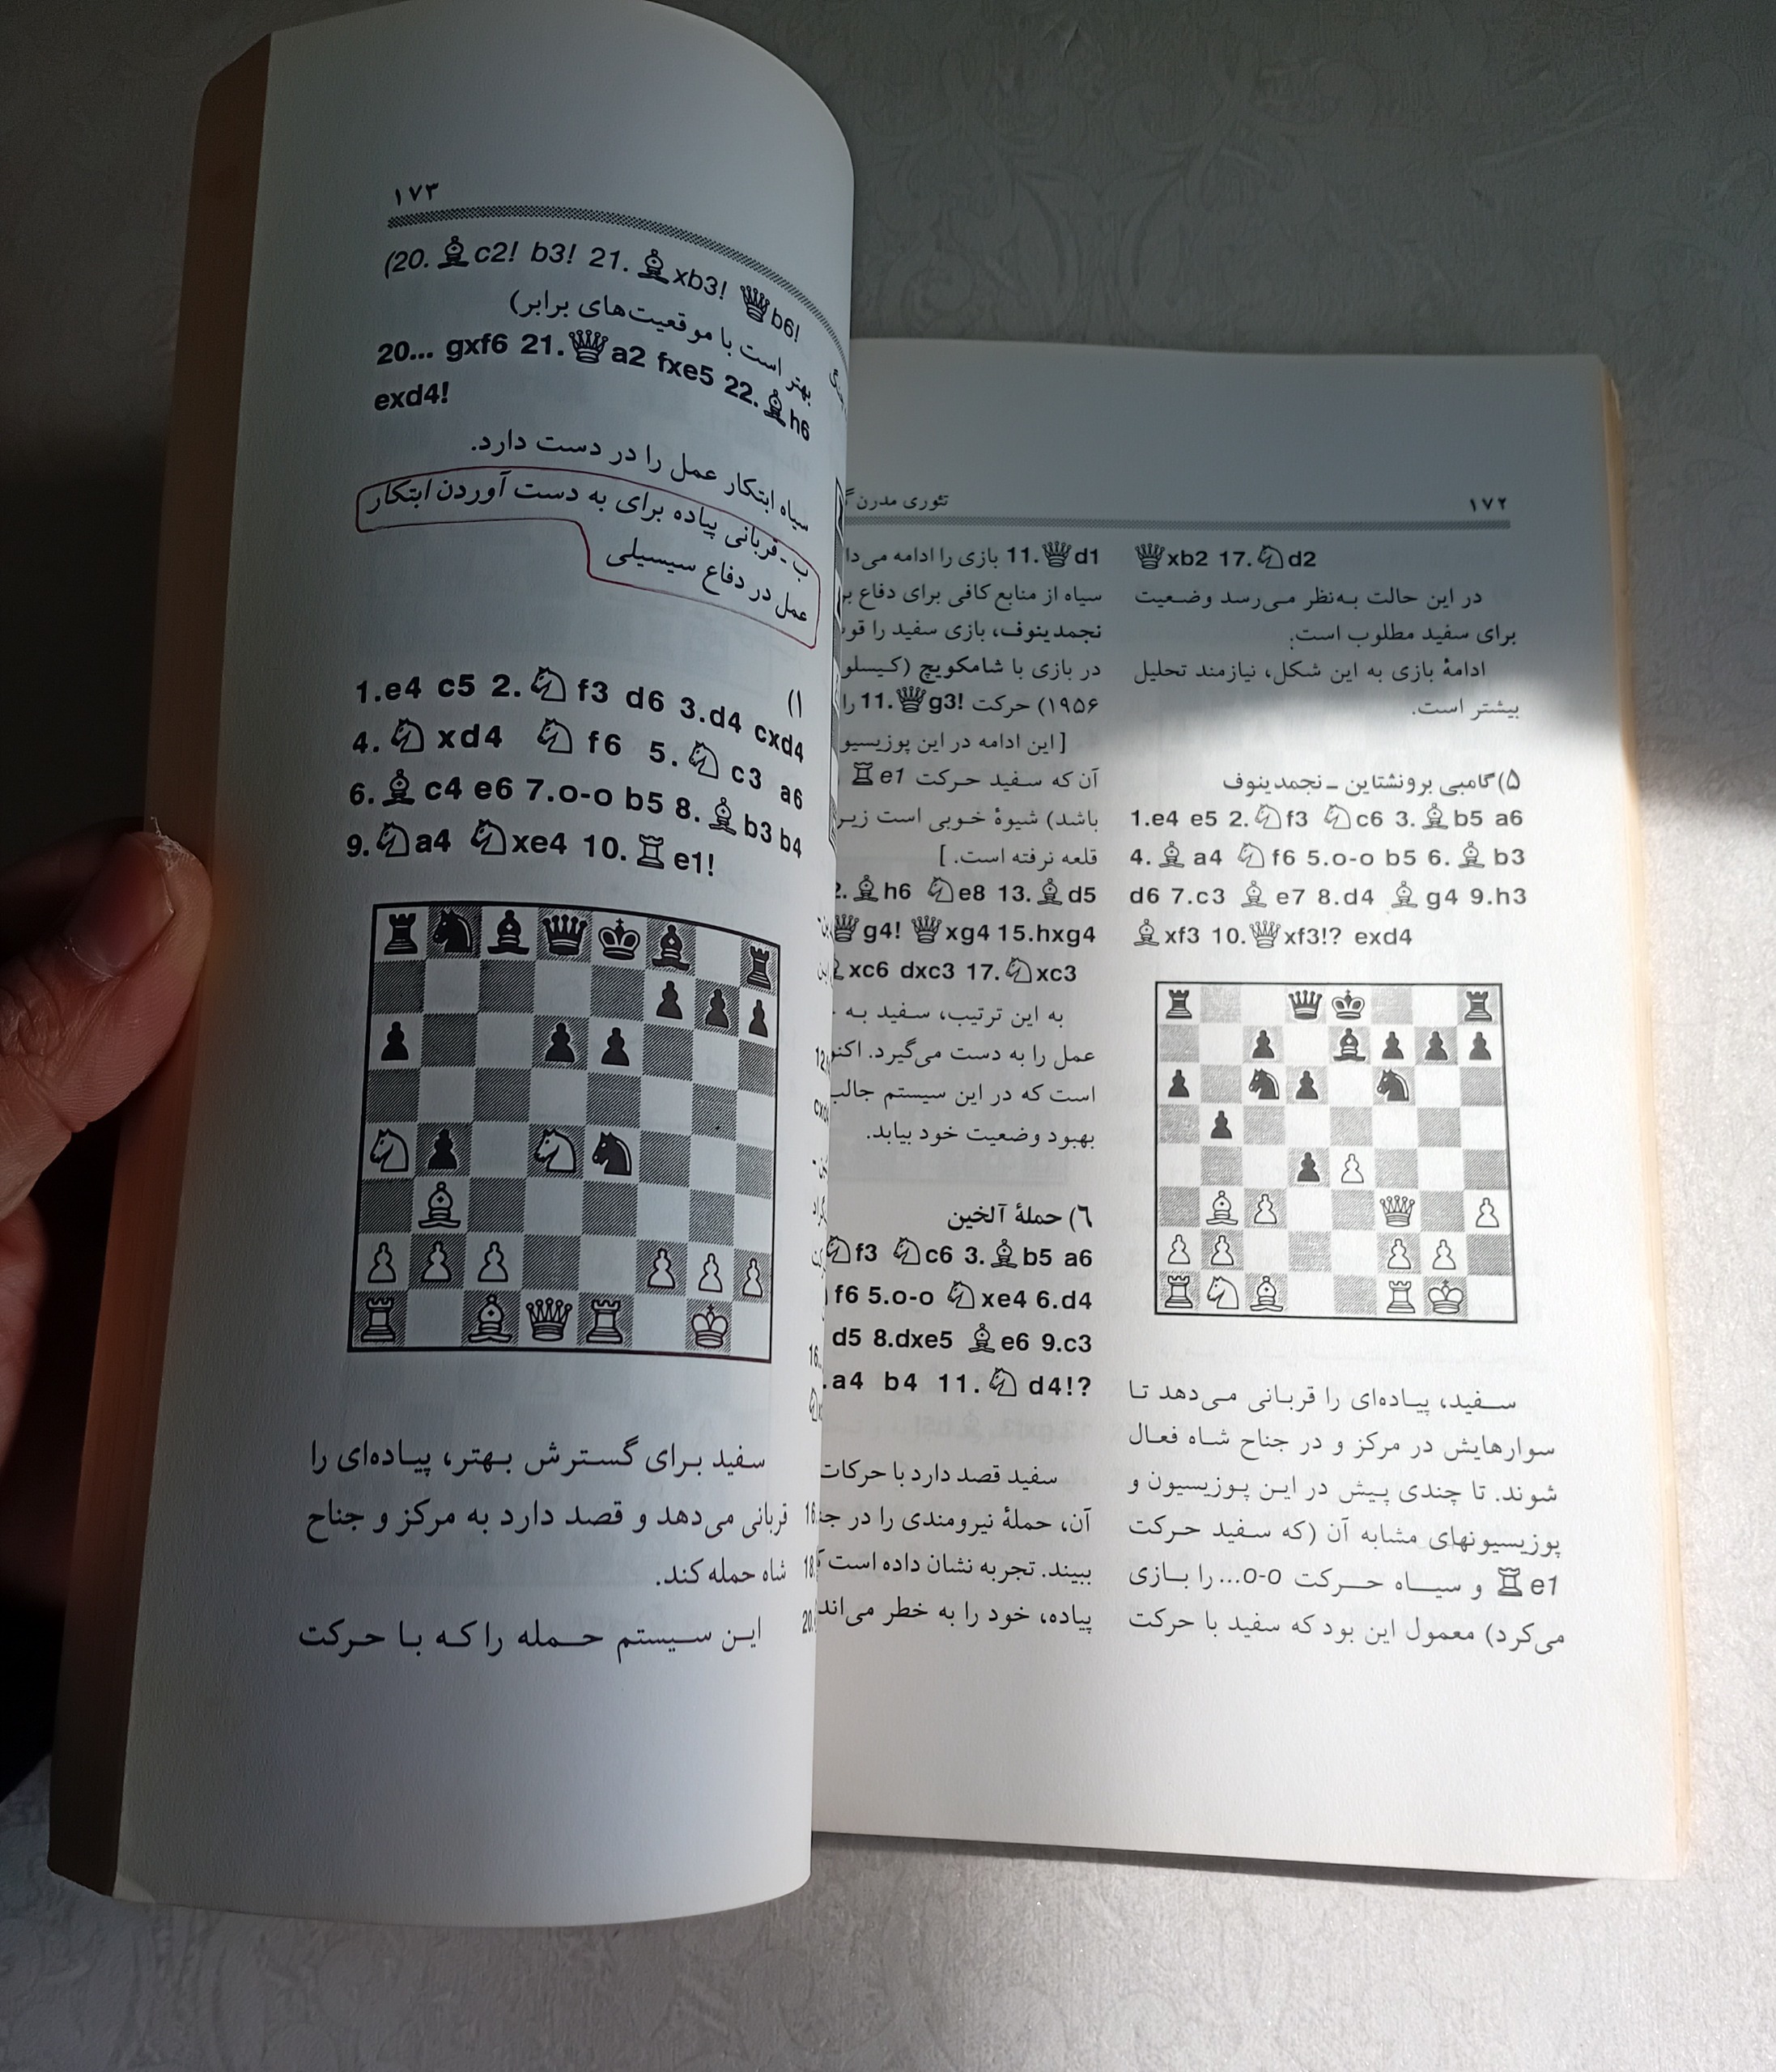 ۱۷۲
تئوری مدرن
♛xb2 17.♘d2
در این حالت به‌نظر می‌رسد وضعیت
برای سفید مطلوب است.
ادامهٔ بازی به این شکل، نیازمند تحلیل
بیشتر است.
۵) گامبی برونشتاین ـ نجمدینوف
1.e4 e5 2.♘f3 ♘c6 3.♗b5 a6
4.♗a4 ♘f6 5.o-o b5 6.♗b3
d6 7.c3 ♗e7 8.d4 ♗g4 9.h3
♗xf3 10.♕xf3!? exd4
سفید، پیاده‌ای را قربانی می‌دهد تا
سوارهایش در مرکز و در جناح شاه فعال
شوند. تا چندی پیش در این پوزیسیون و
پوزیسیونهای مشابه آن (که سفید حرکت
♖e1 و سیاه حرکت o-o... را بازی
می‌کرد) معمول این بود که سفید با حرکت
11.♕d1 بازی را ادامه
سیاه از منابع کافی برای دفاع
نجمدینوف، بازی سفید را
در بازی با شامکویچ
۱۹۵۶) حرکت 11.♕g3! را
[این ادامه در این
آن که سفید حرکت ♖e1
باشد) شیوهٔ خوبی است
قلعه نرفته است.]
♗h6 ♘e8 13.♗d5
♕g4! ♕xg4 15.hxg4
xc6 dxc3 17.♘xc3
به این ترتیب، سفید به
عمل را به دست می‌گیرد.
است که در این سیستم جالب
بهبود وضعیت خود بیابد.
۶) حملهٔ آلخین
♘f3 ♘c6 3.♗b5 a6
f6 5.o-o ♘xe4 6.d4
d5 8.dxe5 ♗e6 9.c3
a4 b4 11.♘d4!?
سفید قصد دارد با حرکات
آن، حملهٔ نیرومندی را در
ببیند. تجربه نشان داده است
پیاده، خود را به خطر
۱۷۳
(20.♗c2! b3! 21.♗xb3! ♕b6!
بهتر است با موقعیت‌های برابر)
20... gxf6 21.♕a2 fxe5 22.♗h6
exd4!
سیاه ابتکار عمل را در دست دارد.
ب ـ قربانی پیاده برای به دست آوردن ابتکار
عمل در دفاع سیسیلی
۱)
1.e4 c5 2.♘f3 d6 3.d4 cxd4
4.♘xd4 ♘f6 5.♘c3 a6
6.♗c4 e6 7.o-o b5 8.♗b3 b4
9.♘a4 ♘xe4 10.♖e1!
سفید برای گسترش بهتر، پیاده‌ای را
قربانی می‌دهد و قصد دارد به مرکز و جناح
شاه حمله کند.
این سیستم حمله را که با حرکت